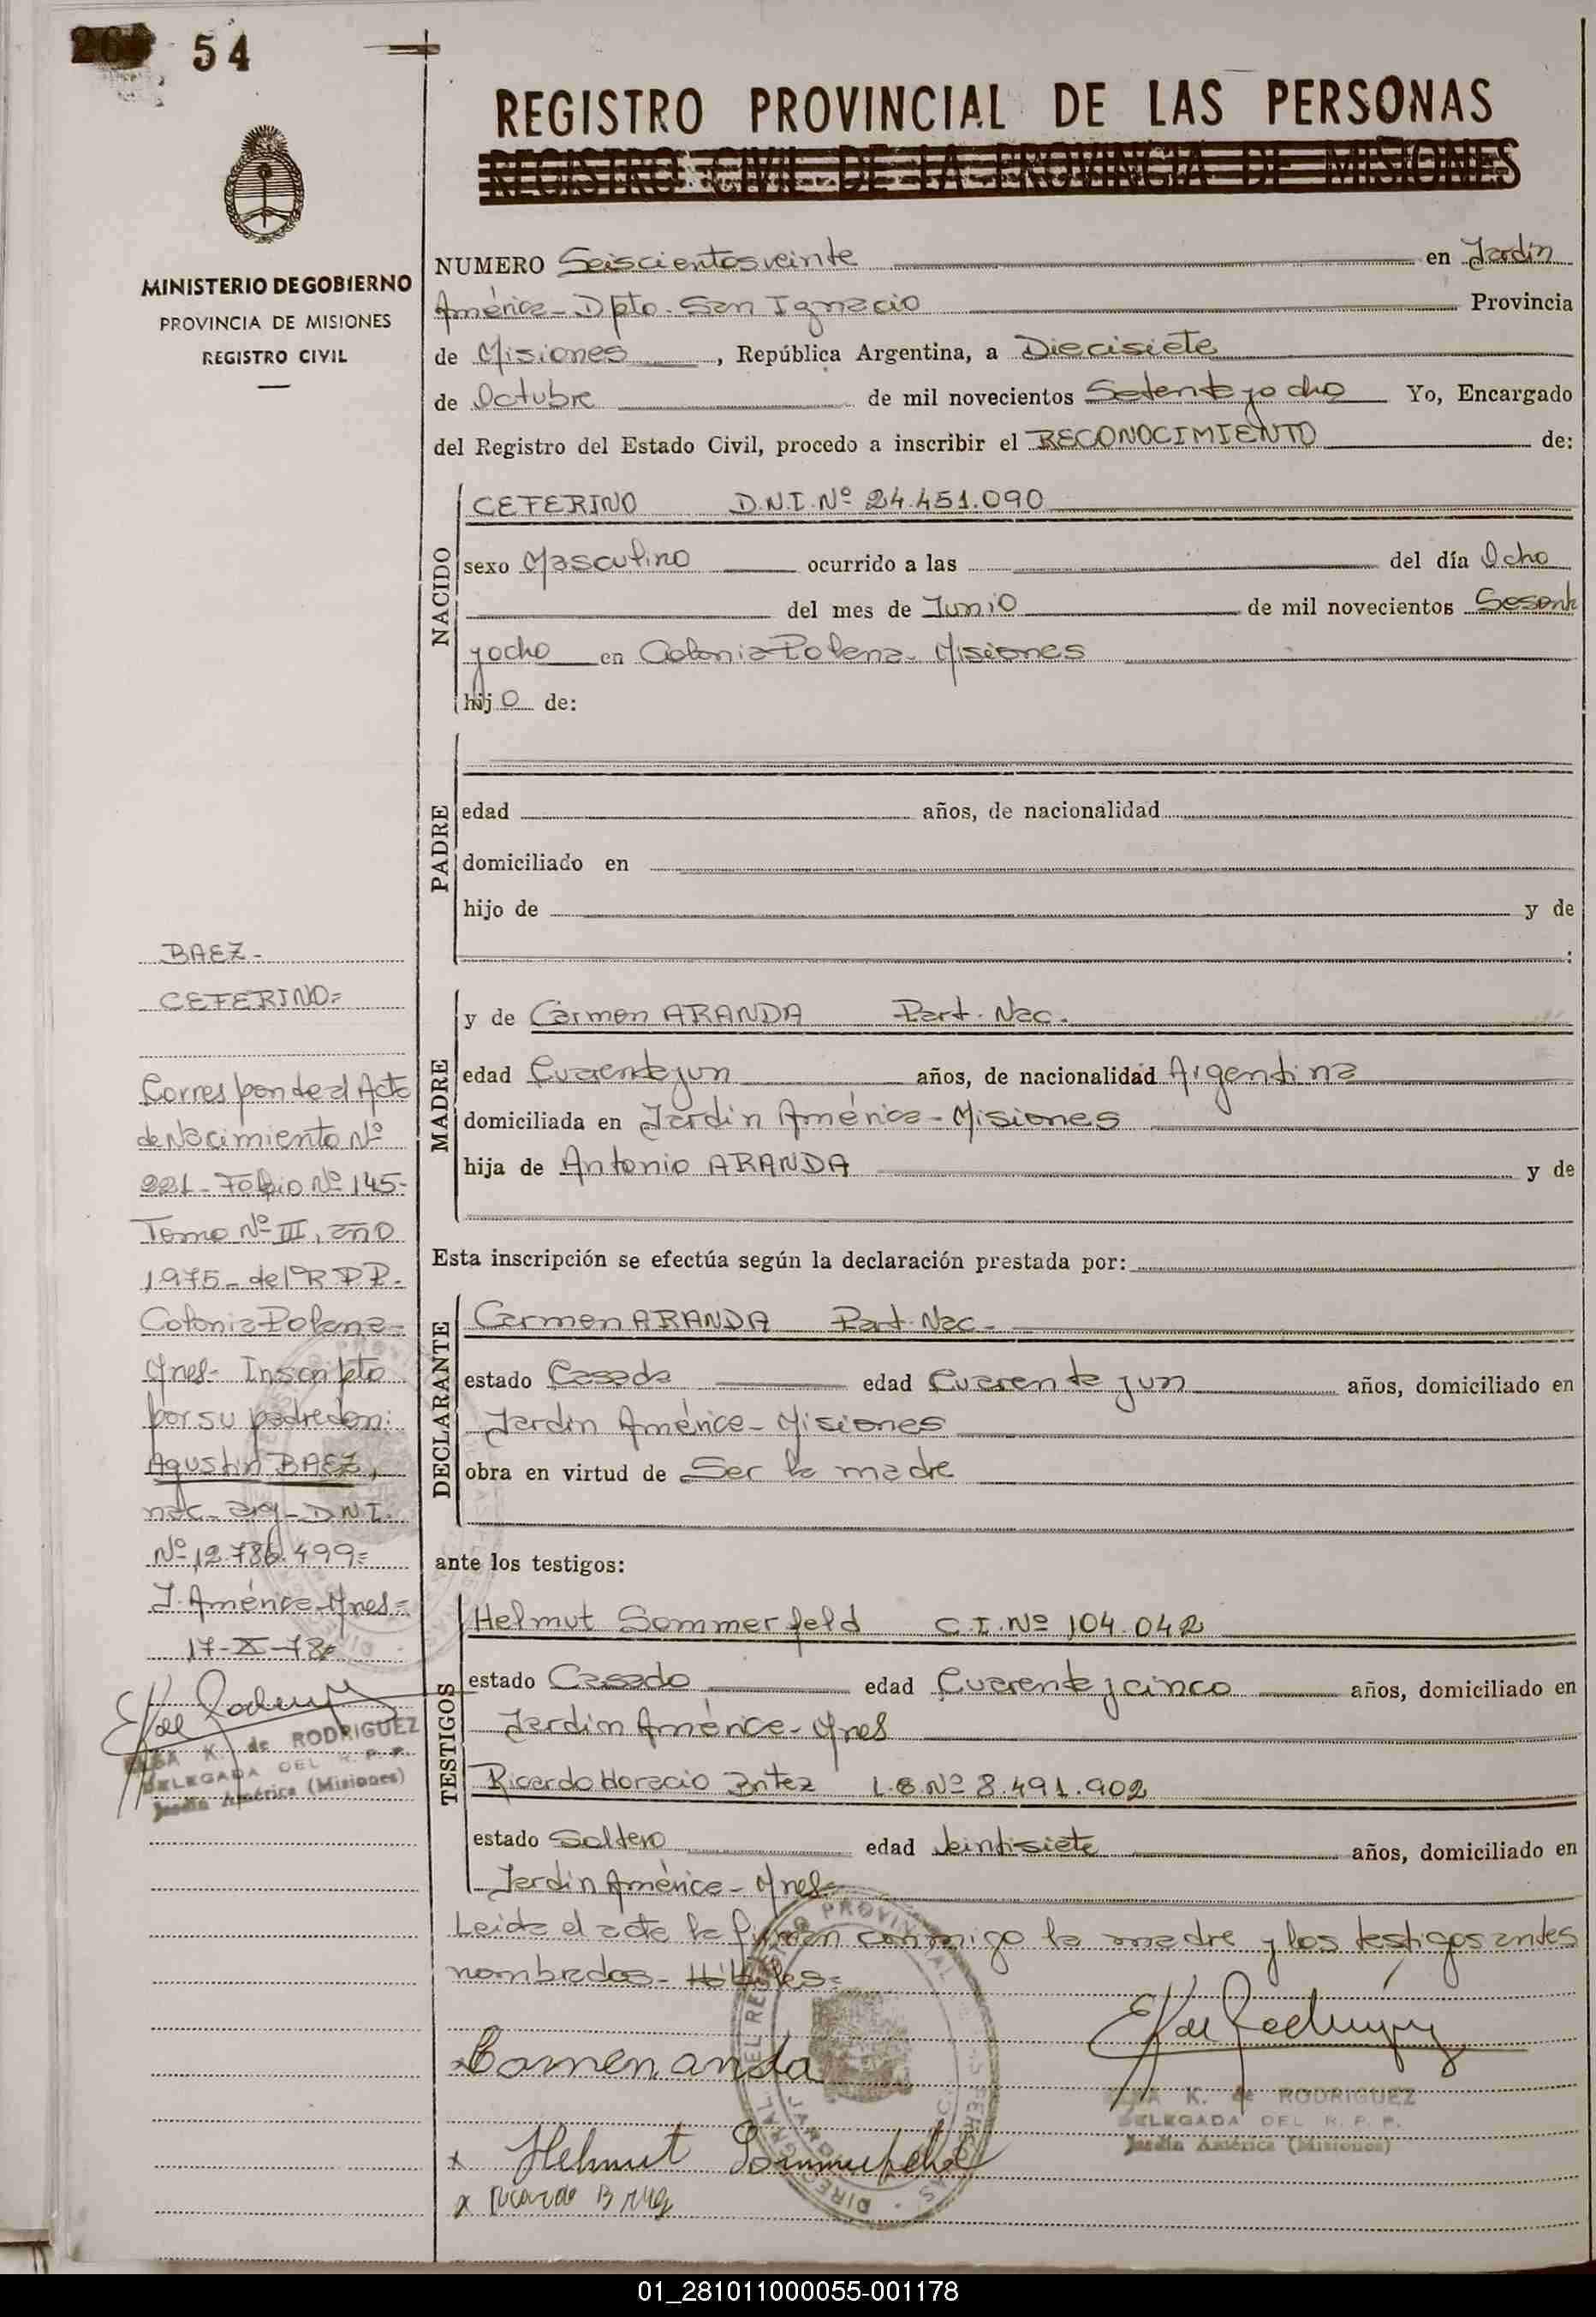 54
REGISTRO PROVINCIAL DE LAS PERSONAS
REGISTRO CIVIL DE LA PROVINCIA DE MISIONES
MINISTERIO DE GOBIERNO
PROVINCIA DE MISIONES
REGISTRO CIVIL
NUMERO Seiscientosveinte en Jardín
América - Dpto. San Ignacio Provincia
de Misiones, República Argentina, a Diecisiete
de Octubre de mil novecientos Setentayocho Yo, Encargado
del Registro del Estado Civil, procedo a inscribir el RECONOCIMIENTO de:
NACIDO
CEFERINO D.N.I. Nº 24.451.090
sexo Masculino ocurrido a las del día Ocho
del mes de Junio de mil novecientos Sesenta
yocho en Colonia Polana - Misiones
hijo de:
PADRE
edad años, de nacionalidad
domiciliado en
hijo de y de
:
MADRE
y de Carmen ARANDA Part. Nac.
edad Cuarentayun años, de nacionalidad Argentina
domiciliada en Jardín América - Misiones
hija de Antonio ARANDA y de
Esta inscripción se efectúa según la declaración prestada por:
DECLARANTE
Carmen ARANDA Part. Nac -
estado Casada edad Cuarentayun años, domiciliado en
Jardín América - Misiones
obra en virtud de Ser la madre
ante los testigos:
TESTIGOS
Helmut Sommerfeld C.I. Nº 104.042
estado Casado edad Cuarentaycinco años, domiciliado en
Jardín América - Mnes
Ricardo Horacio L.E. Nº 8.491.902
estado Soltero edad Veintisiete años, domiciliado en
Jardín América - Mnes -
Leída el acta la firman conmigo la madre y los testigos antes
nombrados - Hábiles =
Helmut Sommerfeld
x Ricardo
ELSA K. de RODRIGUEZ
DELEGADA DEL R. P. P.
Jardín América (Misiones)
BAEZ -
CEFERINO =
Corresponde al Acta
de Nacimiento Nº
221 - Folio Nº 145 -
Tomo Nº III, año
1975 - del R.P.P. -
Colonia Polana -
Mnes - Inscripto
por su padre don:
Agustín BAEZ,
nac - arg - D.N.I.
Nº 12.786.499 =
J. América - Mnes =
17-X-78
ELSA K. de RODRIGUEZ
DELEGADA DEL R. P. P.
Jardín América (Misiones)
01_281011000055-001178